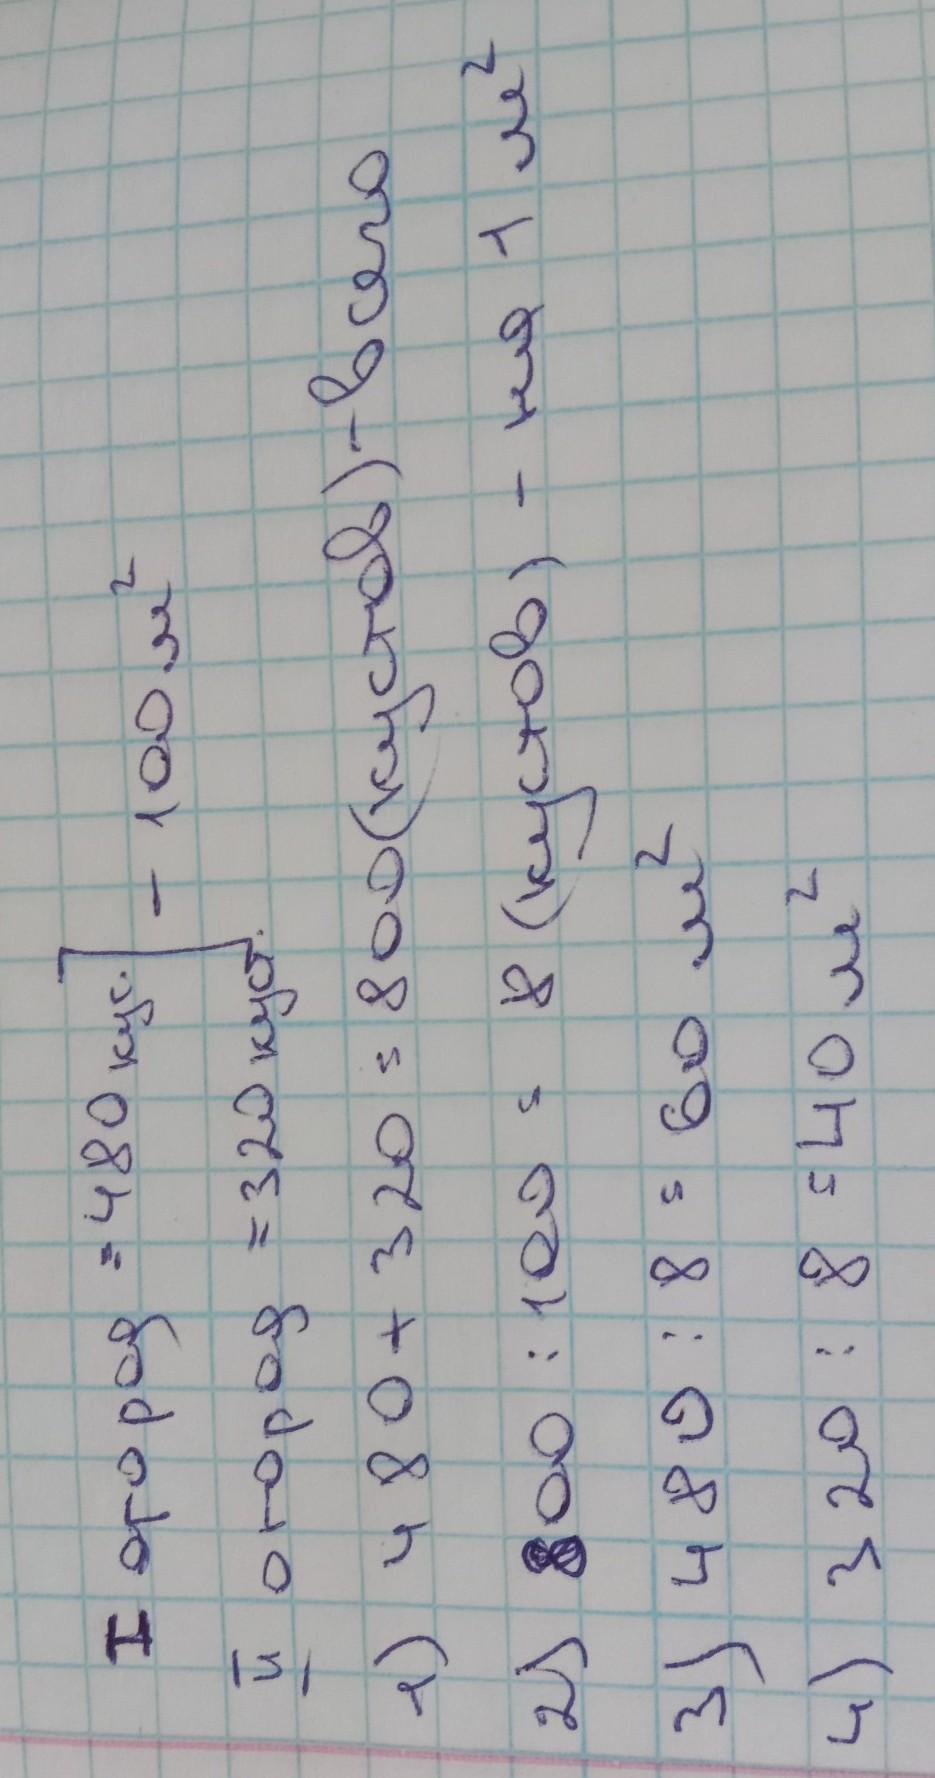 I огород = 480 кус. - 100 м²
II огород = 320 куст.
1) 480 + 320 = 800 (кустов) - всего
2) 800 : 100 = 8 (кустов) - на 1 м²
3) 480 : 8 = 60 м²
4) 320 : 8 = 40 м²